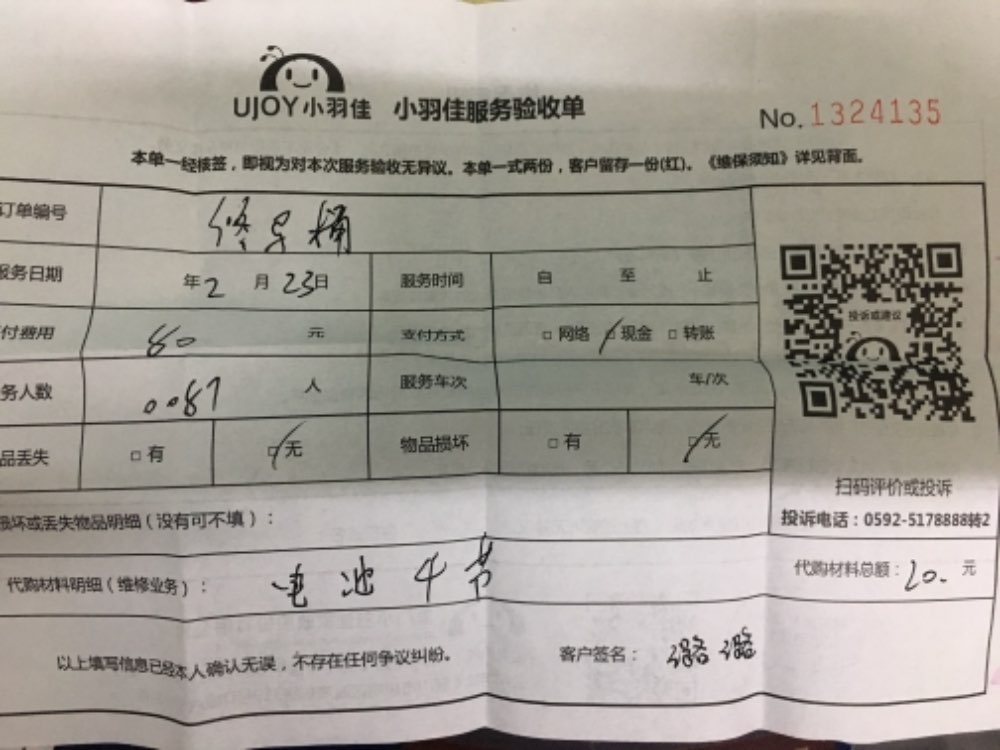 UJOY小羽佳 小羽佳服务验收单
No. 1324135
本单一经接签，即视为对本次服务验收无异议。本单一式两份，客户留存一份(红)。《维保须知》详见背面。
订单编号 修 桶
服务日期 年2月23日 服务时间 自 至 止
付费用 80 元 支付方式 □ 网络 □ 现金 □ 转账
务人数 0087 人 服务车次 车/次
品丢失 □ 有 □ 无 物品损坏 □ 有 □ 无
投诉或建议
扫码评价或投诉
投诉电话：0592-5178888转2
损坏或丢失物品明细（没有可不填）：
代购材料明细（维修业务）： 电池4节 代购材料总额：20. 元
以上填写信息已经本人确认无误，不存在任何争议纠纷。 客户签名：